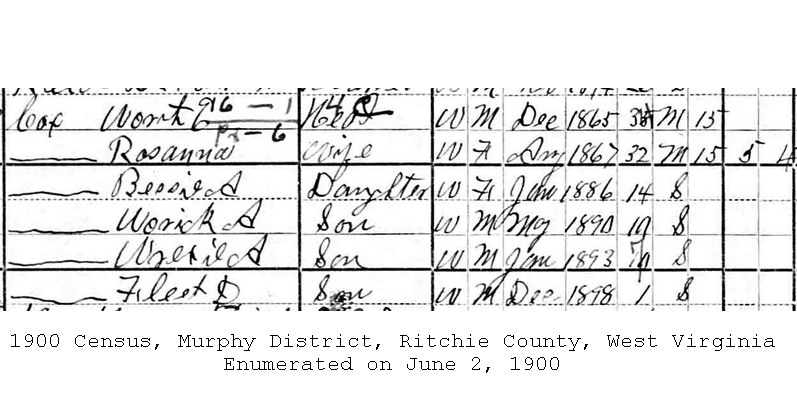 Cox Worth G 916 - 1 Head W M Dec 1865 M 15
P2 - 6
Rosanna Wife W F Aug 1867 32 M 15 5 4
Bessie A Daughter W F Jan 1886 14 S
Worick A Son W M My 1890 10 S
A Son W M Jan 1893 S
Fleet D Son W M Dec 1898 1 S
1900 Census, Murphy District, Ritchie County, West Virginia
Enumerated on June 2, 1900